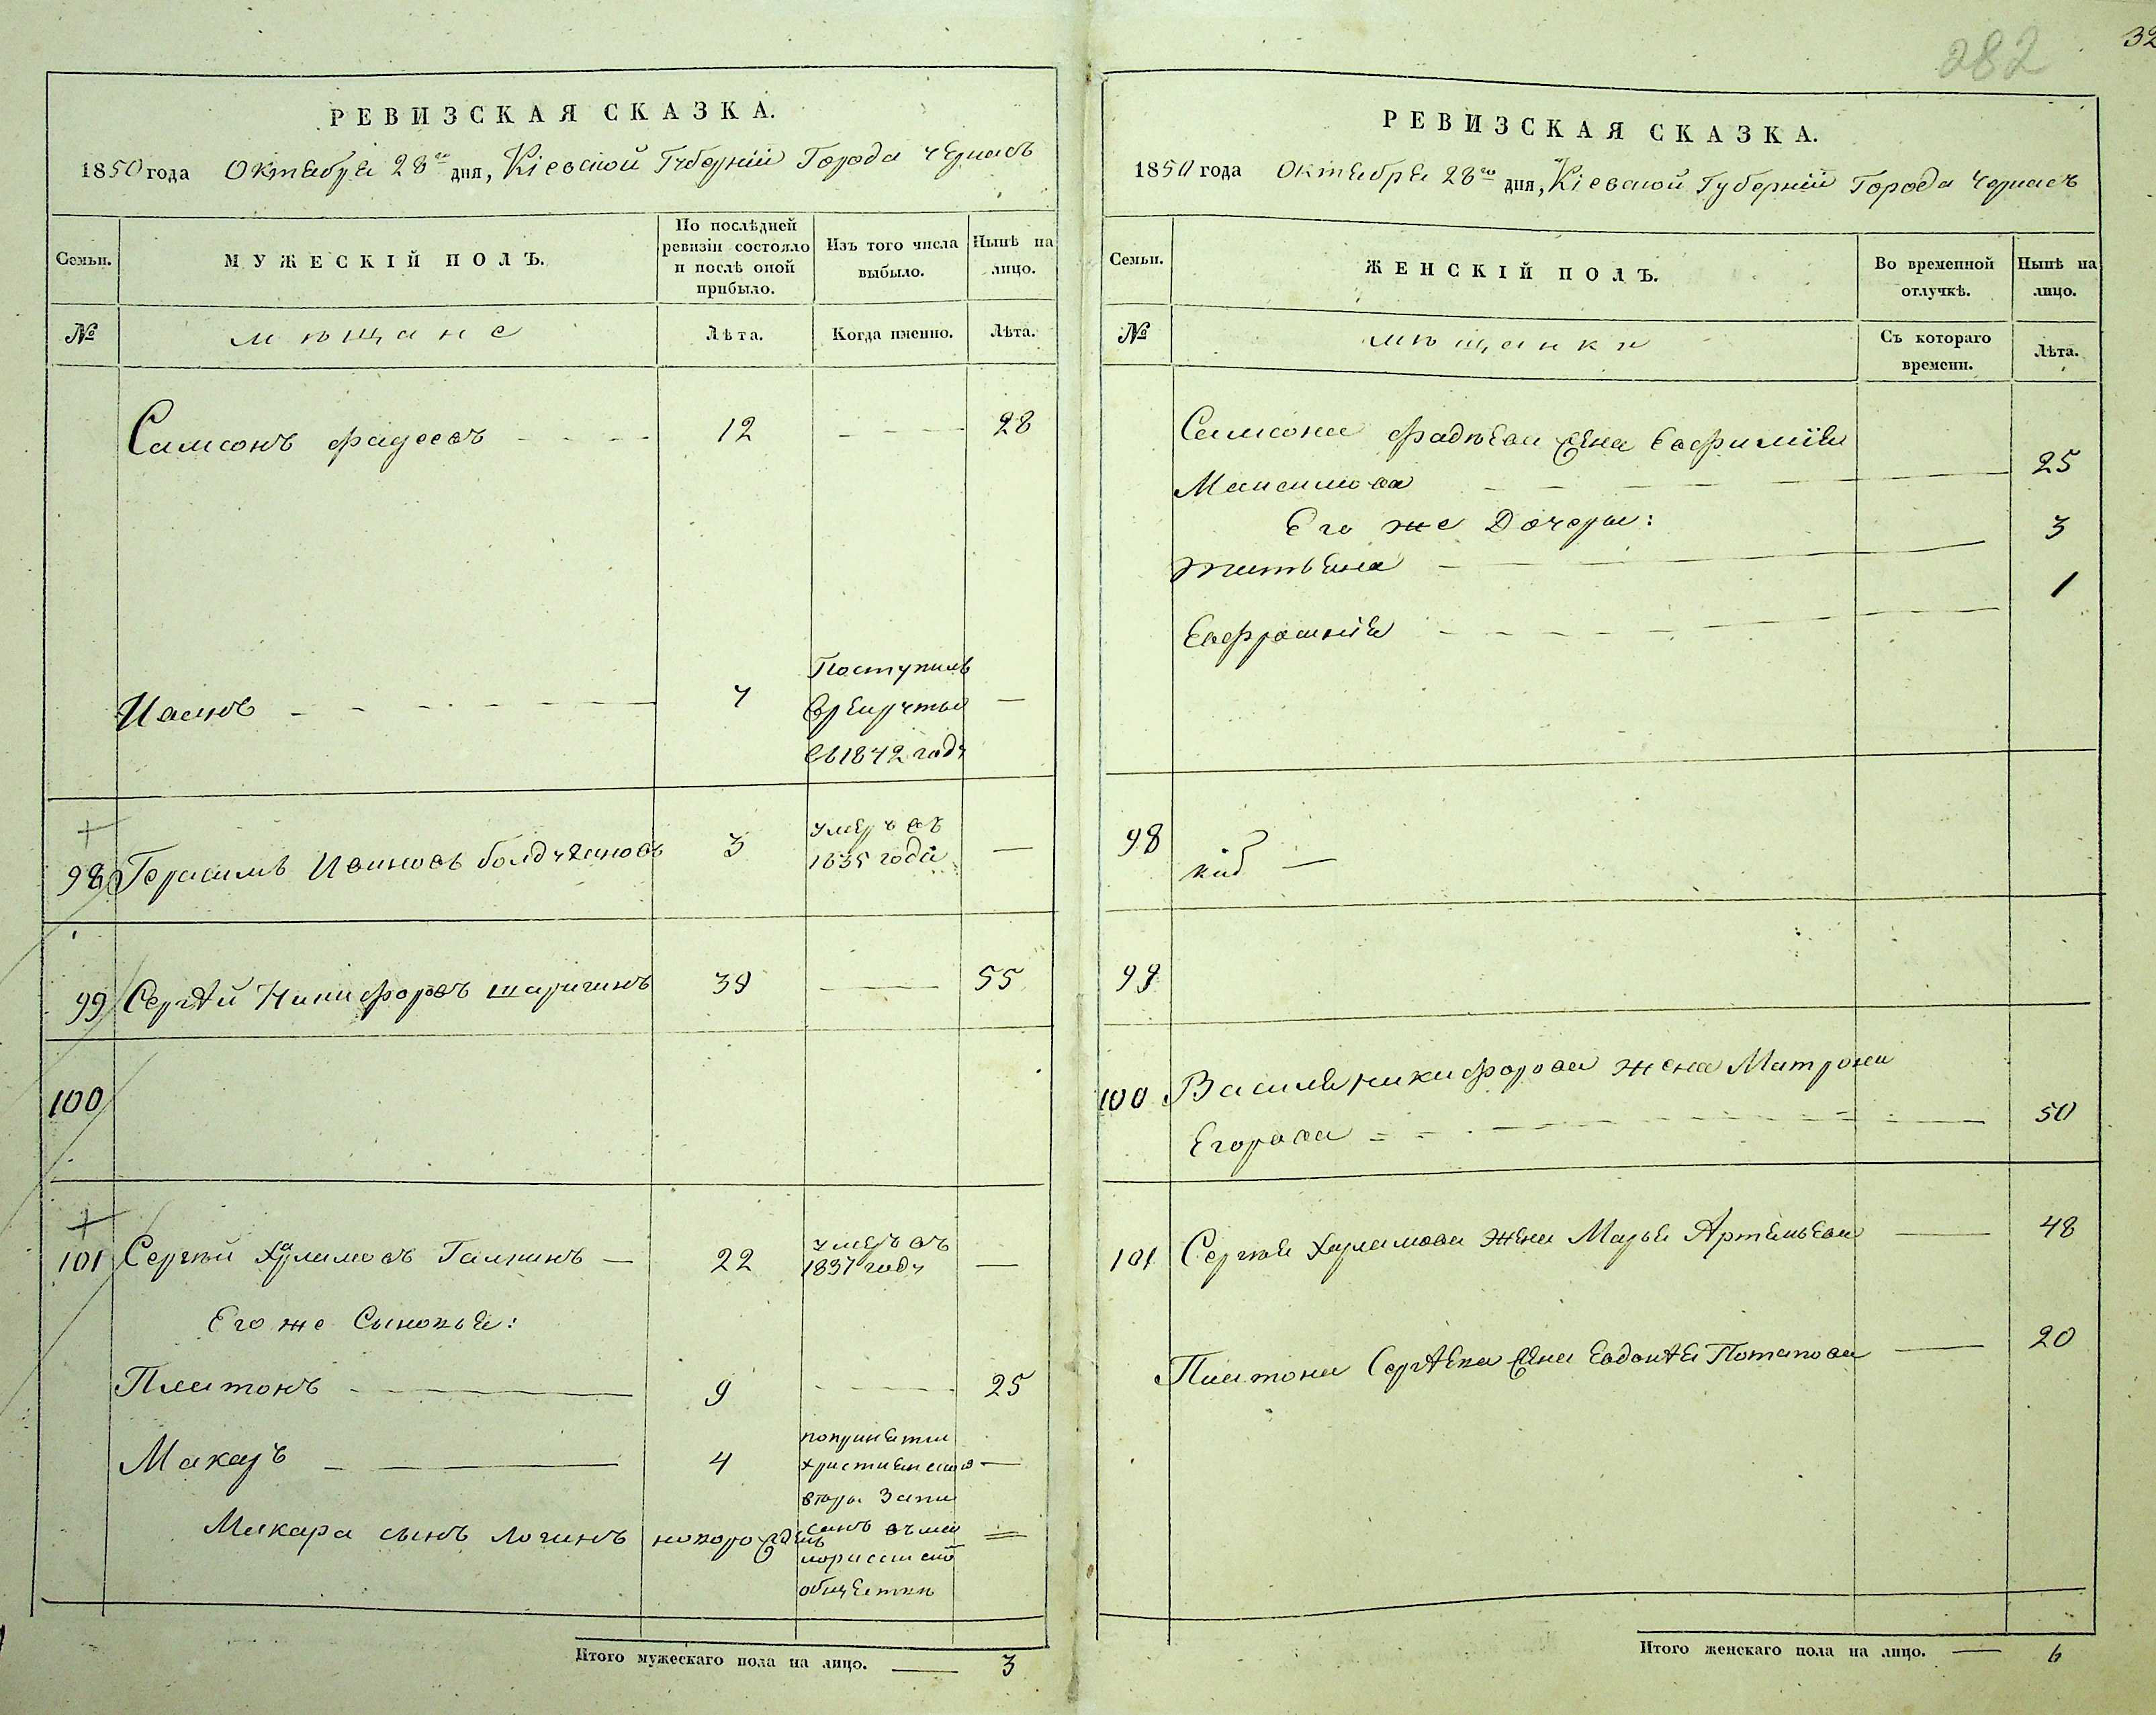 282
32
РЕВИЗСКАЯ СКАЗКА.
1850 года Октября 28го дня, Кіевской Губерніи Города Черкасъ
Семьи.
МУЖЕСКІЙ ПОЛЪ.
По послѣдней
ревизіи состояло
и послѣ оной
прибыло.
Изъ того числа
выбыло.
Нынѣ на
лицо.
№
мѣщане
Лѣта.
Когда именно.
Лѣта.
Самсонъ Фадеевъ 12 28
Поступилъ
Иванъ 7
въ рекруты
въ 1842 году
умеръ въ
98 Герасимъ Ивановъ 3
1835 года
99 Сергѣй Никифоровъ Шаригинъ 39 55
100
умеръ въ
101 Сергѣй Харламовъ Галкинъ 22
1837 году
Его же Сыновья:
Платонъ 9 25
по принятіи
Макаръ 4
християнской
вѣры запи
Макара сынъ Логинъ новорожден
санъ въ мал
лорасийско
обществи
Итого мужескаго пола на лицо. 3
РЕВИЗСКАЯ СКАЗКА.
1850 года Октября 28го дня, Кіевской Губерніи Города Черкасъ
Семьи.
ЖЕНСКІЙ ПОЛЪ.
Во временной
отлучкѣ.
Нынѣ на
лицо.
№
мѣщанки
Съ котораго
времени.
Лѣта.
Самсона Фадѣева жена Евфимія
Максимова 25
Его же Дочери:
3
Татьяна
1
Евфросинія
98
99
100 Василя Никифорова жена Матрона
Егорова 50
101 Сергѣя Харламова жена Марья Артемьева 48
Платона Сергѣева жена Евдокѣя Потапова 20
Итого женскаго пола на лицо. 6